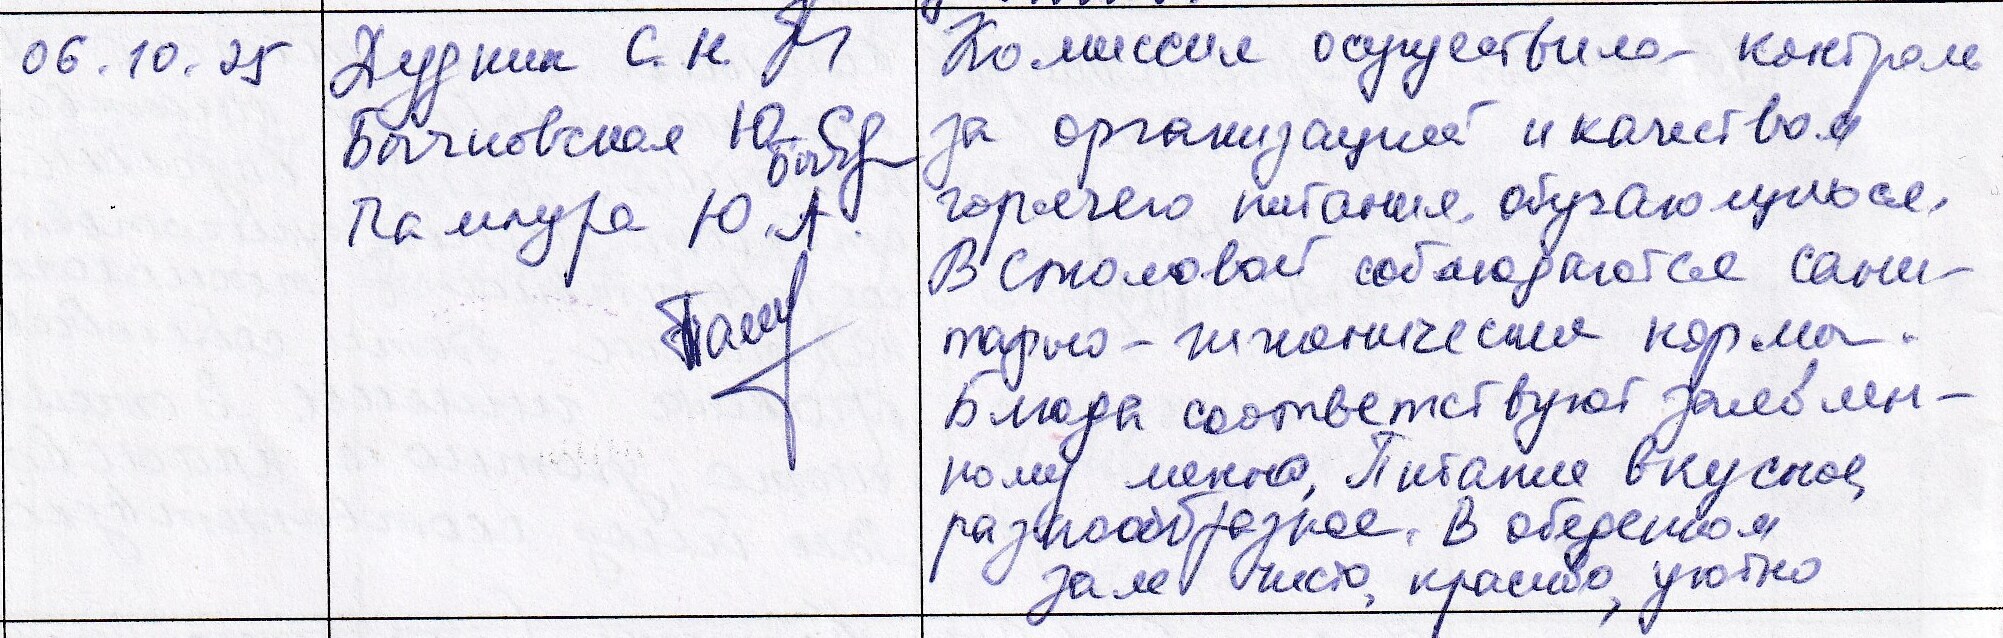 06.10.25
Дудник С.Н.
Бычковская Ю.
Памчура Ю.А.
Комиссия осуществила контроль
за организацией и качеством
горячего питания обучающихся.
В столовой соблюдаются сани-
тарно-гигиенические нормы.
Блюда соответствуют заявлен-
ному меню. Питание вкусное,
разнообразное. В обеденном
зале чисто, красиво, уютно